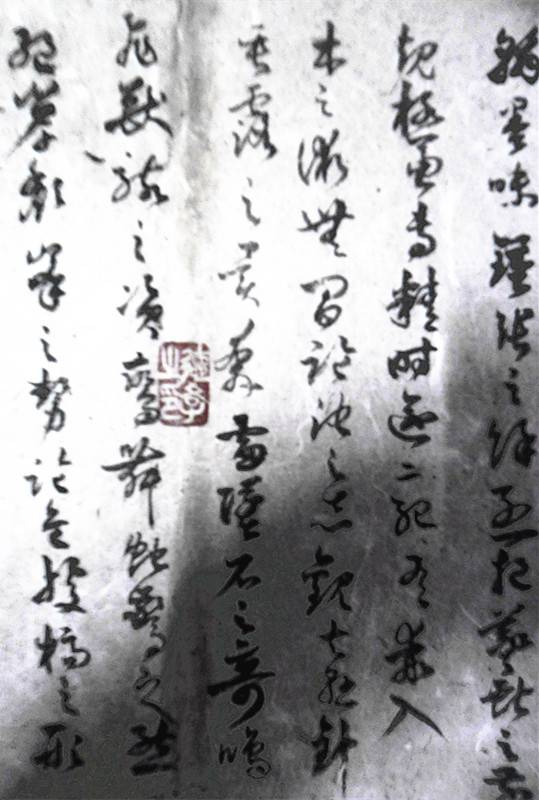 翰墨味鍾張之餘烈挹羲獻之前
規極慮專精時逾二紀有乖入
木之術無間臨池之志觀夫懸針
垂露之異奔雷墜石之奇鴻
飛獸駭之資鸞舞蛇驚之態
絕岸頹峰之勢臨危據槁之形